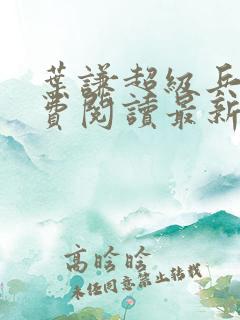 葉謙超級兵
費閱讀最新
高晗晗
未经同意禁止转载